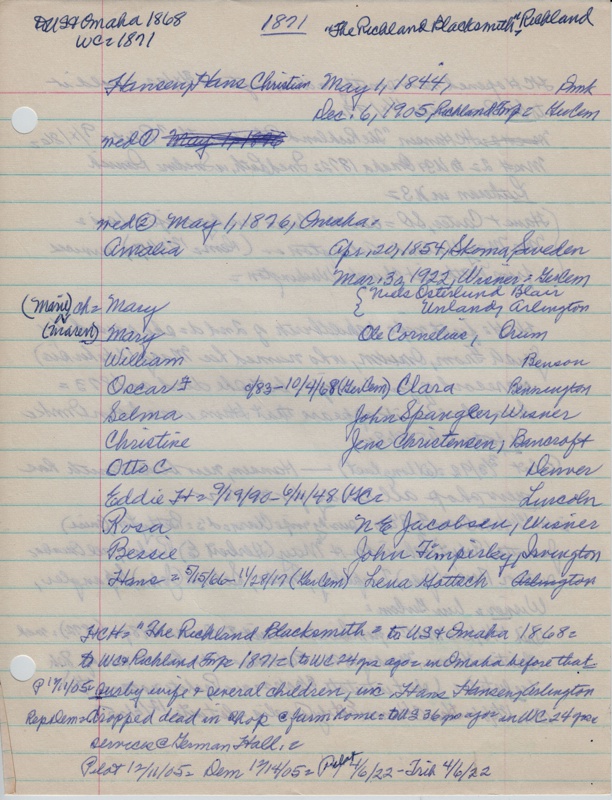 US & Omaha 1868 1871 "The Richland Blacksmith" Richland
WC = 1871
Hansen, Hans Christian May 1, 1844, Dmk
Dec. 6, 1905, Richland Twp = GerCem
med ①
med ② May 1, 1876, Omaha =
Amalia Apr, 20, 1854, Skoma, Sweden
Mar. 30, 1922, Wisner = GerCem
(Marie) ch = Mary { Niels Osterlund, Blair
{ Unland, Arlington
(Maren) Mary Ole Cornelius, Orum
William Benson
Oscar F 0/83-10/4/68 (GerCem) Clara Bennington
Selma John Spangler, Wisner
Christine Jens Christensen, Bancroft
Otto C Denver
Eddie H = 9/19/90-6/11/48 (WC = Lincoln
Rosa N E Jacobsen, Wisner
Bessie John Timperley, Irvington
Hans = 5/15/66-11/28/17 (GerCem) Lena Gottsch Arlington
HCH = "The Richland Blacksmith = to US & Omaha 1868 =
to WC & Richland Twp = 1871 = (to WC 24 yrs ago = in Omaha before that =
P 12/11/05 = by wife & several children, inc Hans Hansen, Arlington
Rep Dem = dropped dead in shop @ farm home = to US 36 yrs ago = in WC 24 yrs =
Services @ German Hall, =
Pilot 12/11/05 = Dem 12/14/05 = Pilot 4/6/22 - Trib 4/6/22